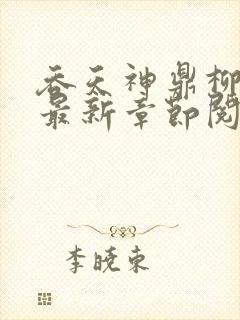 吞天神鼎柳
最新章节阅
李晓东